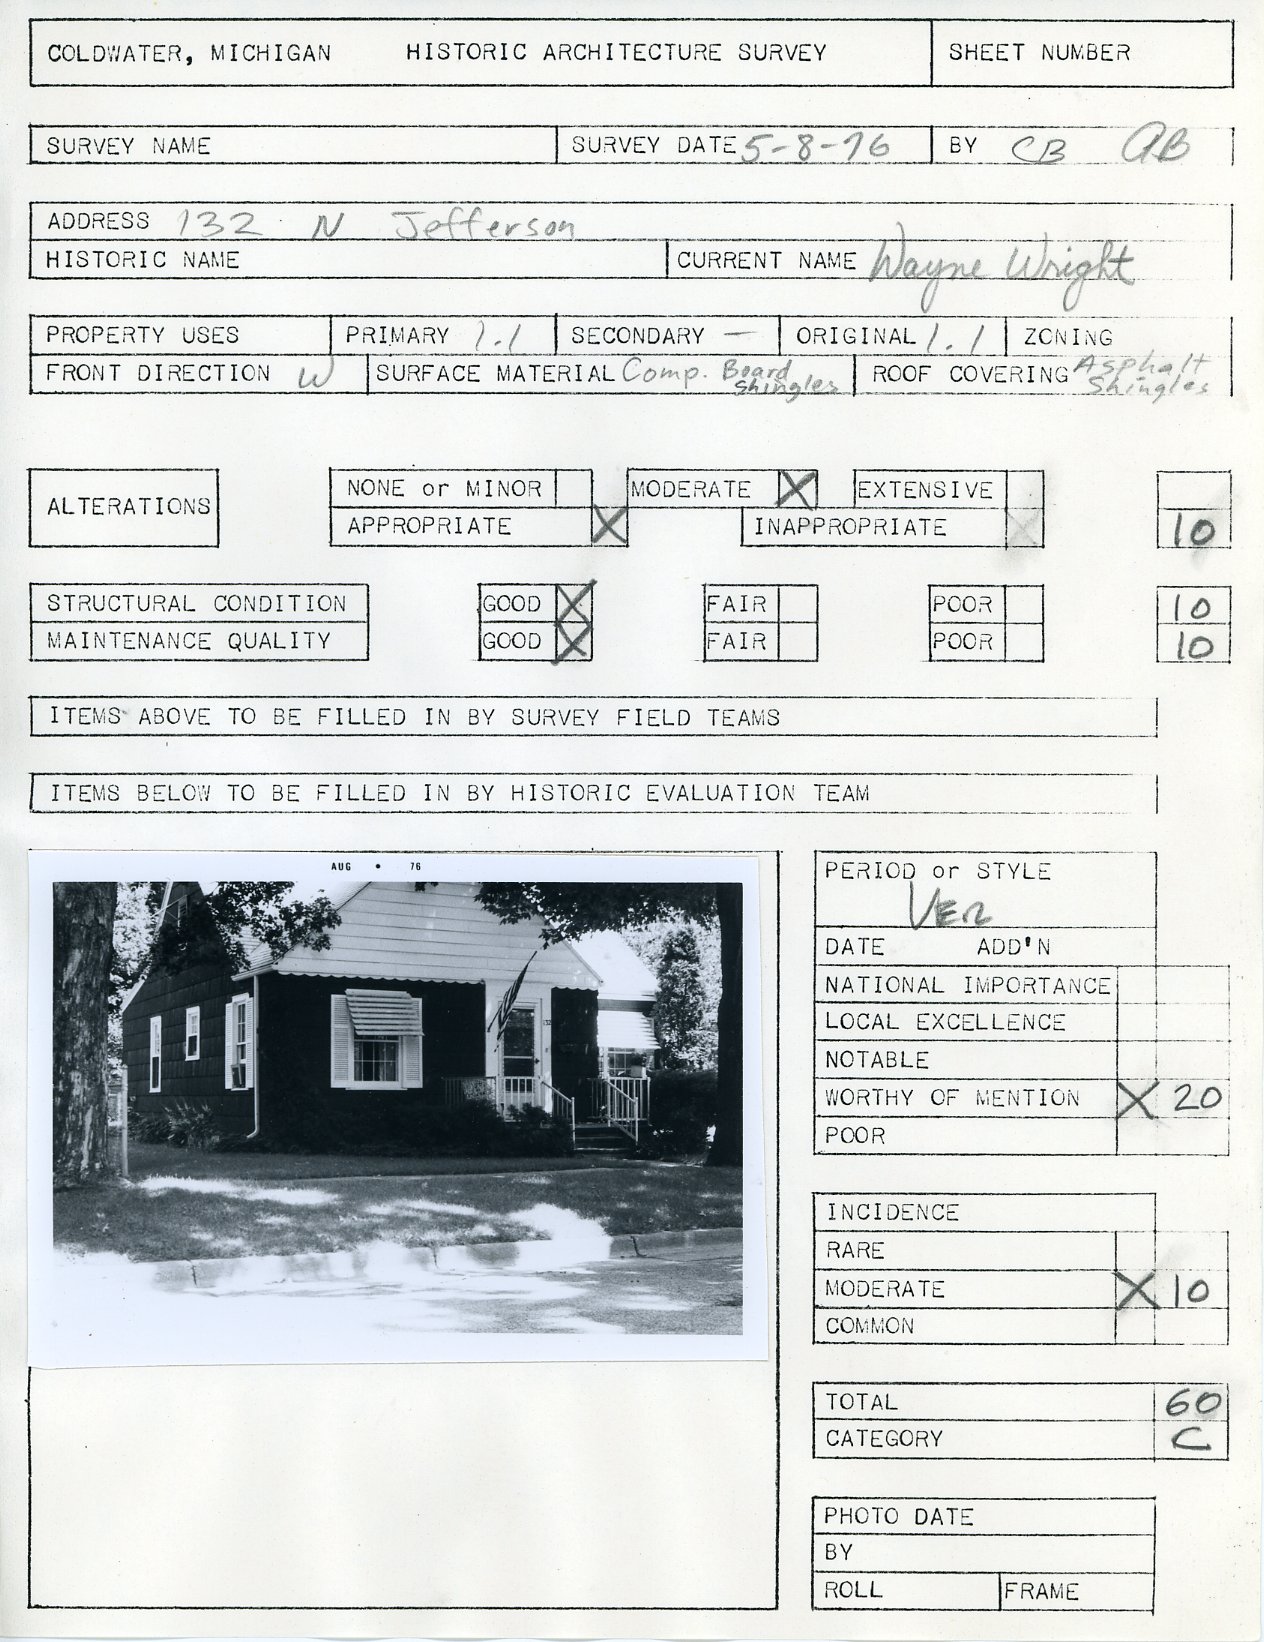 COLDWATER, MICHIGAN HISTORIC ARCHITECTURE SURVEY SHEET NUMBER
SURVEY NAME SURVEY DATE 5-8-76 BY CB AB
ADDRESS 132 N Jefferson
HISTORIC NAME CURRENT NAME Wayne Wright
PROPERTY USES PRIMARY 1.1 SECONDARY — ORIGINAL 1.1 ZONING
FRONT DIRECTION W SURFACE MATERIAL Comp. Board Shingles ROOF COVERING Asphalt Shingles
ALTERATIONS NONE or MINOR MODERATE X EXTENSIVE
APPROPRIATE X INAPPROPRIATE X 10
STRUCTURAL CONDITION GOOD X FAIR POOR 10
MAINTENANCE QUALITY GOOD X FAIR POOR 10
ITEMS ABOVE TO BE FILLED IN BY SURVEY FIELD TEAMS
ITEMS BELOW TO BE FILLED IN BY HISTORIC EVALUATION TEAM
AUG • 76
132
PERIOD or STYLE
VER
DATE ADD'N
NATIONAL IMPORTANCE
LOCAL EXCELLENCE
NOTABLE
WORTHY OF MENTION X 20
POOR
INCIDENCE
RARE
MODERATE X 10
COMMON
TOTAL 60
CATEGORY C
PHOTO DATE
BY
ROLL FRAME